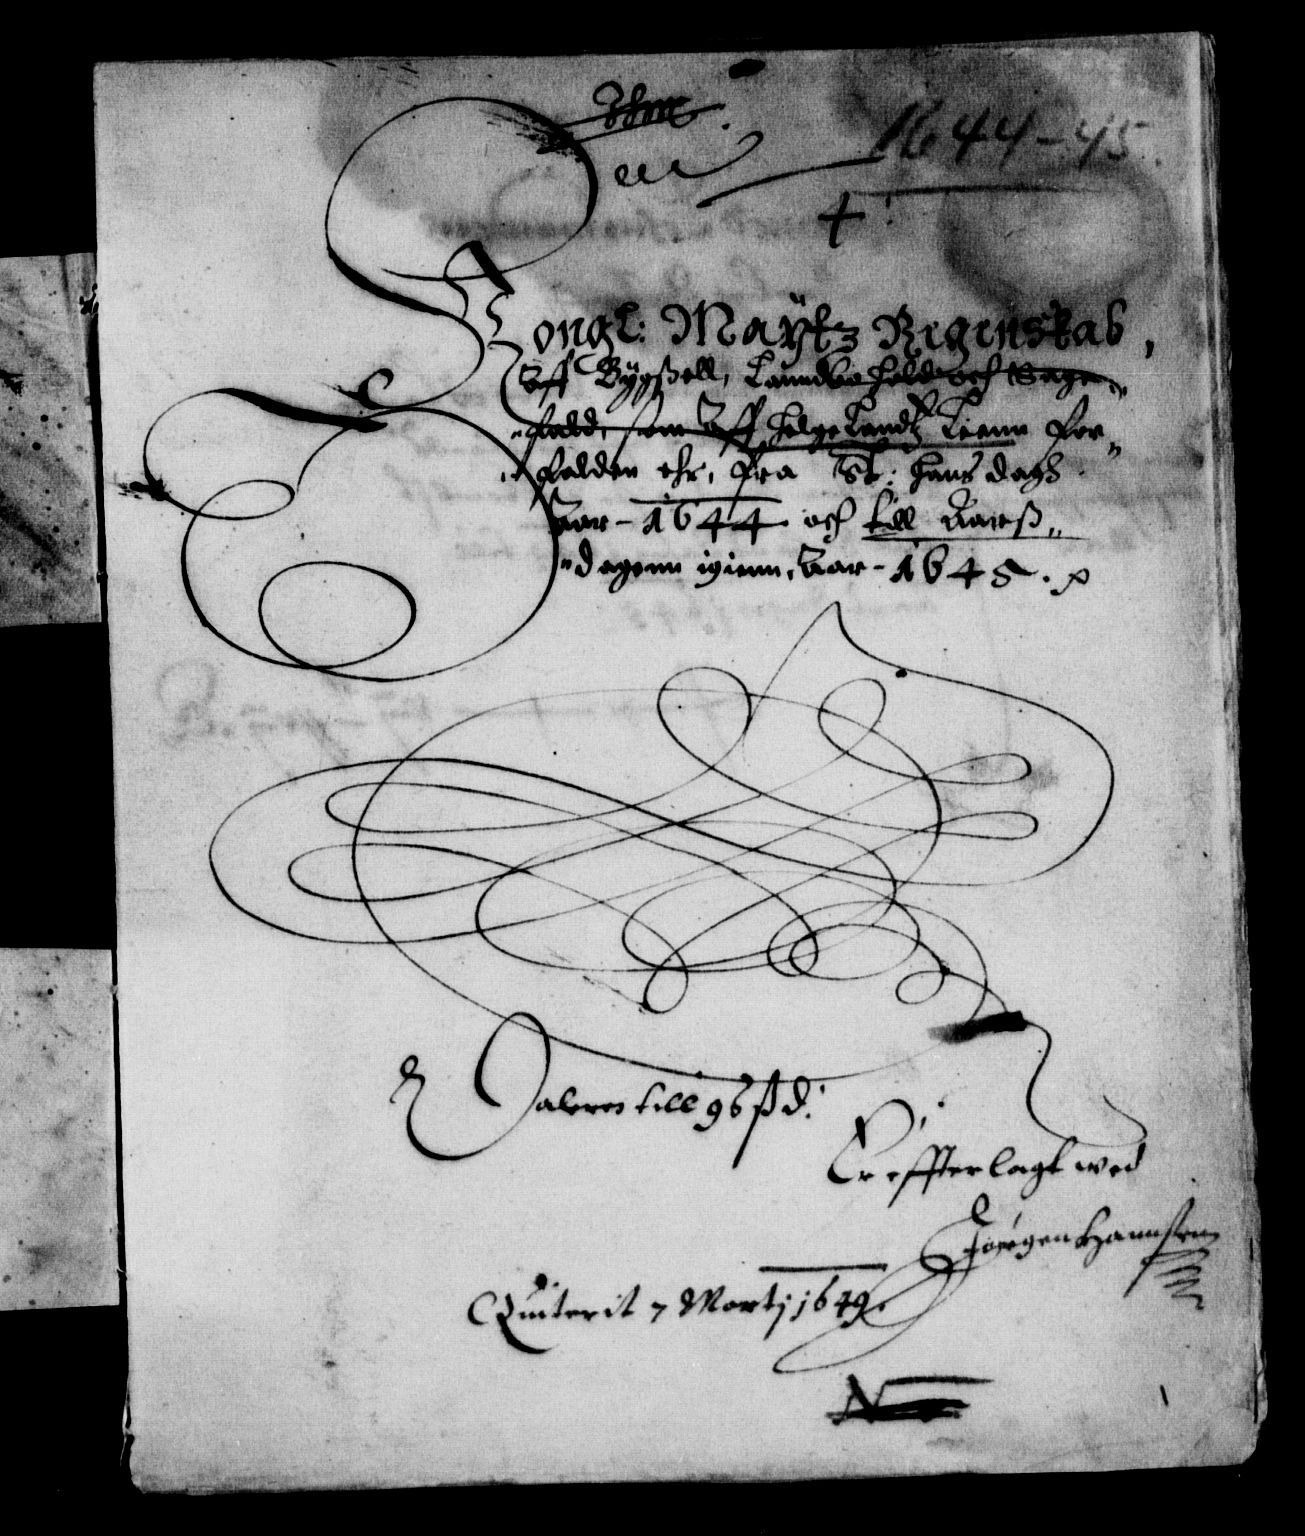 1644-45.
Kongl: Maÿtz Regenskab,
Aff Bÿgßell, Landbo hold och Sage„
„fald, som Aff Helgelandtz Leenn for„
„falden ehr, fra St: Hans dagh
Aar - 1644 och till Aarß„
„dagenn igienn, Aar - 1645.
Daleren till 96 ß d:
Er effterlagt wed
Jørgen Hannsen
Quiterit 7 Martj 1649.